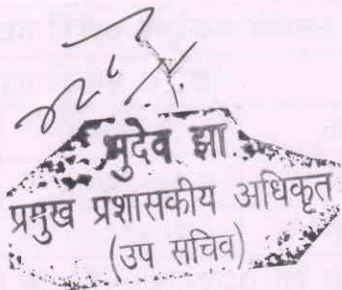 भुदेव झा
प्रमुख प्रशासकीय अधिकृत
(उप सचिव)